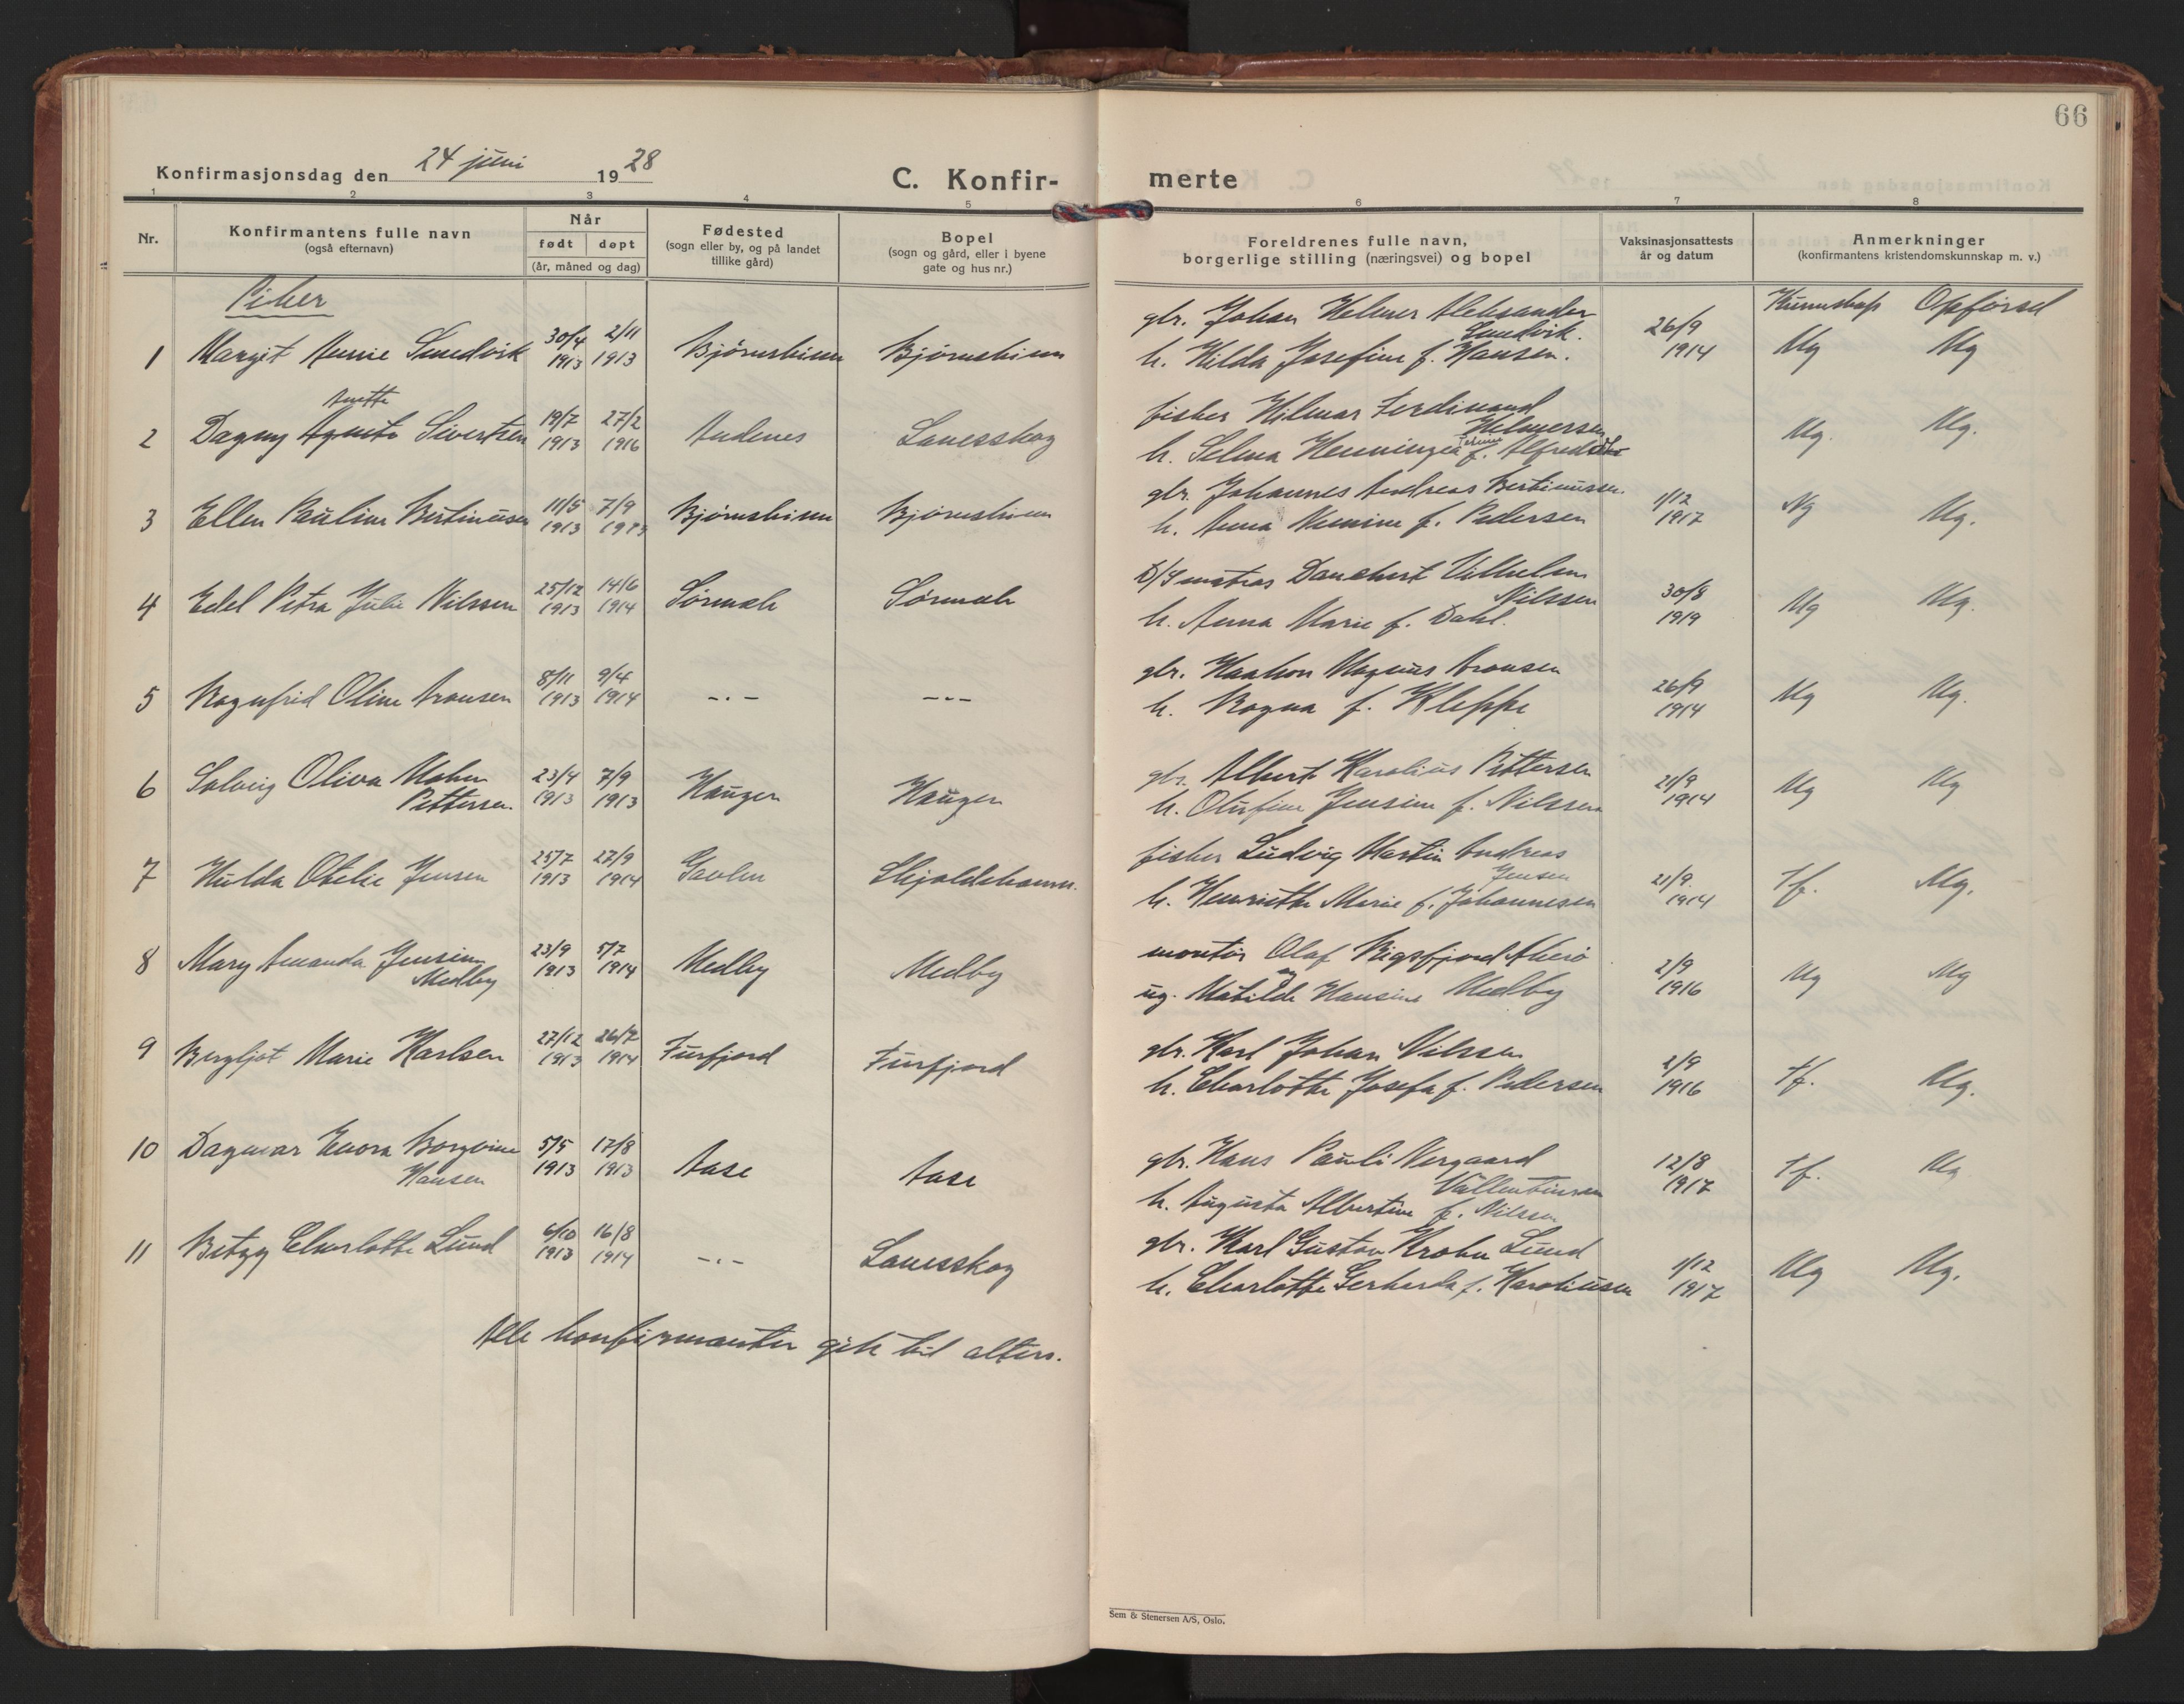 66
Konfirmasjonsdag den 24 juni 1928
C. Konfir- merte
1 2 3 4 5 6 7 8
Nr.
Konfirmantens fulle navn
(også efternavn)
Når
født døpt
(år, måned og dag)
Fødested
(sogn eller by, og på landet
tillike gård)
Bopel
(sogn og gård, eller i byene
gate og hus nr.)
Foreldrenes fulle navn,
borgerlige stilling (næringsvei) og bopel
Vaksinasjonsattests
år og datum
Anmerkninger
(konfirmantens kristendomskunnskap m. v.)
Piker
Kunnskap Opførsel
1 Margit Annie Sundvik 30/4 1913 2/11 1913 Bjørnskinn Bjørnskinn
gbr. Johan Helmer Aleksander
Sundvik.
h. Hilda Josefine f. Hansen.
26/9 1914 Mg Mg
Anette
2 Dagny Agneta Sivertsen 19/7 1913 27/2 1916 Andenes Lanesskog
fisker Hilmar Ferdinand
Helmersen
h. Selma Henningia f. Alfred
Mg. Mg.
3 Ellen Pauline Bertinusen 11/5 1913 7/9 1913 Bjørnskinn Bjørnskinn
gbr. Johannes Andreas Bertinussen.
h. Anna f. Pedersen
1/12 1917 Ng Mg.
4 Edel Petra Julie Nilssen 25/12 1913 14/6 1914 Sørmæle Sørmæle
D/S matros Danckert Vilhelm
Nilssen
h. Anna Marie f. Dahl.
30/8 1919 Mg Mg.
5 Ragnfrid Oline Aronsen 8/11 1913 9/4 1914 -.- -.-
gbr. Haakon Magnus Aronsen
h. Ragna f. Kleppe
26/9 1914 Mg Mg.
6 Solveig Oliva
Pettersen. 23/4 1913 7/9 1913 Haugen Haugen
gbr. Albert Karolius Pettersen
h. Olufine Jensine f. Nilssen
21/9 1914 Mg Mg
7 Hulda Otelie Jensen 25/7 1913 27/9 1914 Gavlen Skjoldehamn.
fisker Ludvig Martin Andreas
Jensen
h. Henriette Marie f. Johannesen
21/9. 1914 Tf. Mg.
8 Mary Amanda Jensine
Medby 23/9 1913 5/7 1914 Medby Medby
montør Olaf Rigsfjord Akerø
og
ug. Matilde Hansine Medby
2/9 1916 Mg Mg
9 Bergljot Marie Karlsen 27/12 1913 26/7 1914 Furfjord Furfjord
gbr. Karl Johan Nilssen
h. Charlotte Josefa f. Pedersen
2/9 1916 Tf. Mg.
10 Dagmar Enora Borgvine
Hansen 5/5 1913 17/8 1913 Aase Aase
gbr. Hans Pauli Nergaard
Vallentinsen
h. Augusta Albertine f. Nilsen
12/8 1917 Tf. Mg
11 Betzy Charlotte Lund 6/10 1913 16/8 1914 -.- Lanesskog
gbr. Karl Gustav Krohn Lund
h. Charlotte Gerharda f. Karoliusen
1/12 1917 Mg Mg.
Alle konfirmanter gik til alters.
Sem & Stenersen A/S, Oslo.